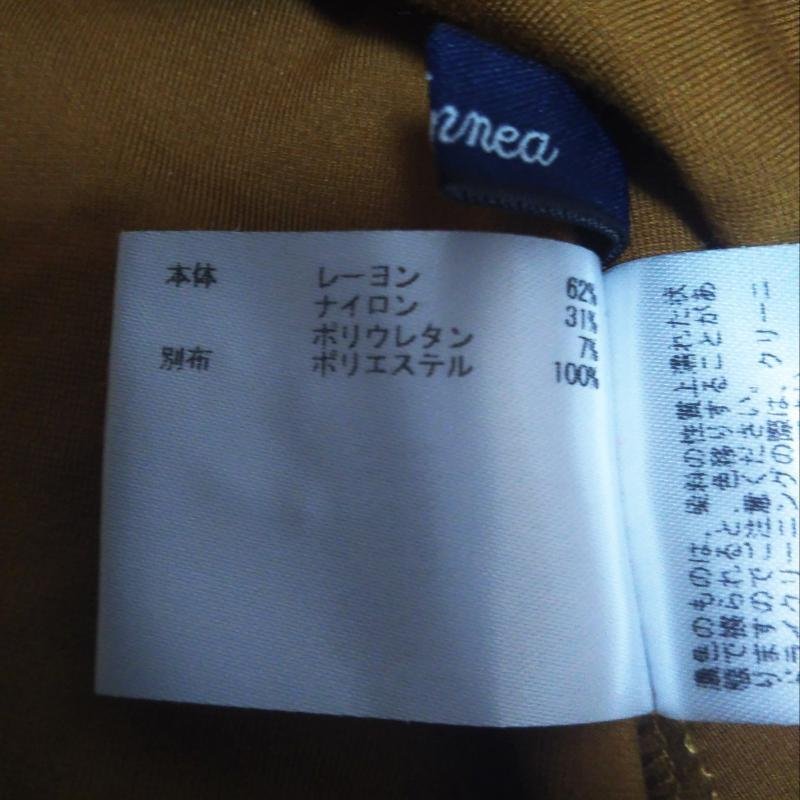 nnea
本体 レーヨン 62%
ナイロン 31%
ポリウレタン 7%
別布 ポリエステル 100%
濃色のものは、染料の性質上濡れた状
態で擦られると、色移りすることがあ
りますのでご注意ください。
クリーニングの際は、
クリーニ